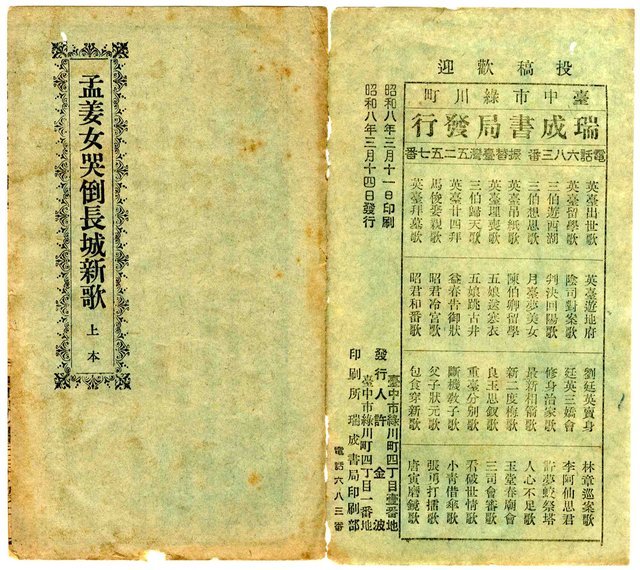 投稿歡迎
臺中市綠川町
瑞成書局發行
電話六八三番 振替臺灣五二五七番
英臺出世歌
英臺留學歌
三伯遊西湖
三伯想思歌
英臺吊紙歌
英臺埋喪歌
三伯歸天歌
英臺廿四拜
馬俊娶親歌
英臺拜墓歌
英臺遊地府
陰司對案歌
判決回陽歌
月臺夢美女
陳伯卿留學
五娘送寒衣
五娘跳古井
益春告御狀
昭君冷宮歌
昭君和番歌
劉廷英賣身
廷英三嬌會
修身治家歌
最新相箭歌
新二度梅歌
良玉思釵歌
重臺分別歌
斷機敎子歌
父子狀元歌
包食穿新歌
林章巡案歌
李阿仙思君
許夢蛟祭塔
人心不足歌
玉堂春廟會
三司會審歌
看破世情歌
小青借傘歌
張勇打擂歌
唐寅磨鏡歌
昭和八年三月十一日印刷
昭和八年三月十四日發行
臺中市綠川町四丁目壹番地
發行人 許金波
臺中市綠川町四丁目一番地
印刷所 瑞成書局印刷部
電話六八三番
孟姜女哭倒長城新歌 上本